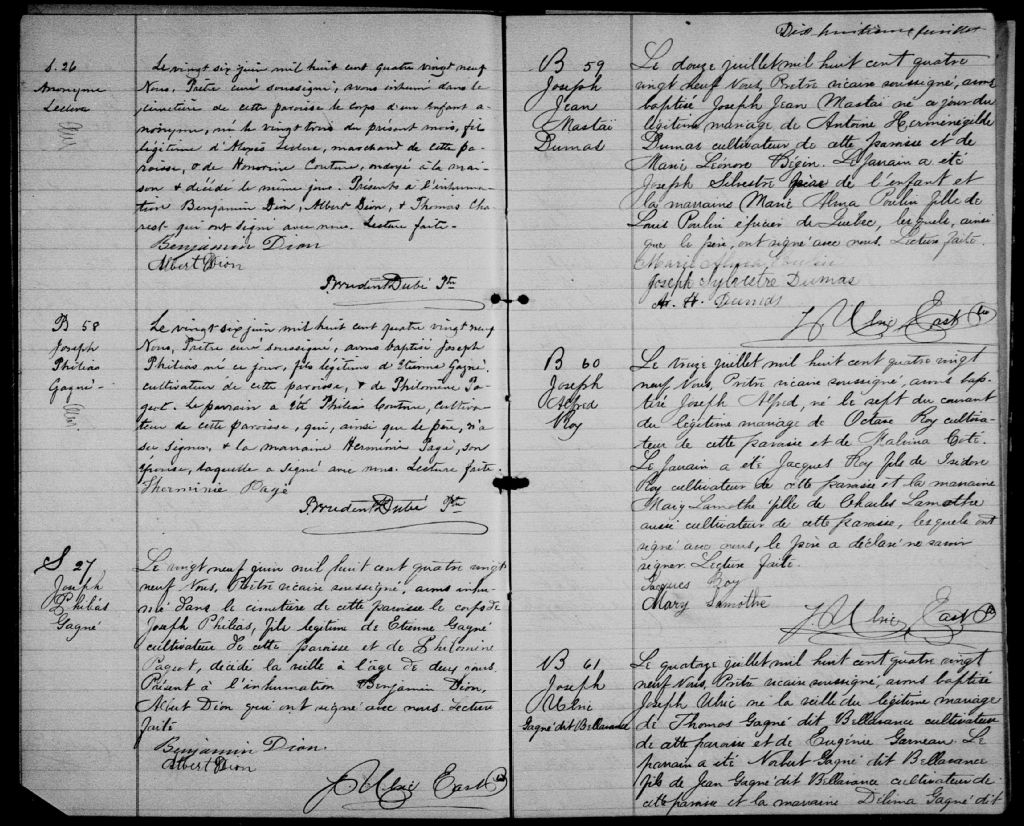 S. 26
Anonyme
Leclerc
Le vingt six juin mil huit cent quatre vingt neuf
Nous, Prêtre curé soussigné, avons inhumé dans le
cimetière de cette paroisse le corps d'un enfant a-
nonyme, né le vingt trois du présent mois, fils
légitime d'Aloyès Leclerc, marchand de cette pa-
roisse, & de Honorine Couture, ondoyé à la mai-
son & décédé le même jour. Présents à l'inhuma-
tion Benjamin Dion, Albert Dion, & Thomas Cha-
rest qui ont signé avec nous. Lecture faite-
Benjamin Dion
Albert Dion
Prudent Dubé Ptre
B 58
Joseph
Philias
Gagné-
Le vingt six juin mil huit cent quatre vingt neuf
Nous, Prêtre curé soussigné, avons baptisé Joseph
Philias né ce jour, fils légitime d'Etienne Gagné,
cultivateur de cette paroisse, & de Philomène Pa-
geot. Le parrain a été Philias Couture, cultiva-
teur de cette paroisse, qui, ainsi que le père, n'a
su signer, & la marraine Herménie Pagé, son
épouse, laquelle a signé avec nous. Lecture faite.
Herminie Pagé
Prudent Dubé Ptre
S 27
Joseph
Philias
Gagné
Le vingt neuf juin mil huit cent quatre vingt
neuf Nous, Prêtre vicaire soussigné, avons inhu-
mé dans le cimetière de cette paroisse le corps de
Joseph Philias, fils légitime de Etienne Gagné
cultivateur de cette paroisse et de Philomène
Pageot, décédé la veille à l'âge de deux jours.
Présent à l'inhumation Benjamin Dion,
Albert Dion qui ont signé avec nous. Lecture
faite
Benjamin Dion
Albert Dion
J. Ulric East Ptre
Dix huitième feuillet
B 59
Joseph
Jean
Mastaï
Dumas
Le douze juillet mil huit cent quatre
vingt neuf Nous, Prêtre vicaire soussigné, avons
baptisé Joseph Jean Mastaï né ce jour du
légitime mariage de Antoine Herménégilde
Dumas cultivateur de cette paroisse et de
Marie Léonore Bégin. Le parrain a été
Joseph Silvestre frère de l'enfant et
la marraine Marie Alma Poulin fille de
Louis Poulin épicier de Québec, lesquels, ainsi
que le père, ont signé avec nous. Lecture faite.
Marie Alma Poulin
Joseph Sylvestre Dumas
A. H. Dumas
J. Ulric East Ptre
B 60
Joseph
Alfred
Roy
Le treize juillet mil huit cent quatre vingt
neuf Nous, Prêtre vicaire soussigné, avons bap-
tisé Joseph Alfred, né le sept du courant
du légitime mariage de Octave Roy cultiva-
teur de cette paroisse et de Malvina Coté.
Le parrain a été Jacques Roy fils de Isidore
Roy cultivateur de cette paroisse et la marraine
Mary Lamothe fille de Charles Lamothe
aussi cultivateur de cette paroisse, lesquels ont
signé avec nous, le père a déclaré ne savoir
signer. Lecture faite.
Jacques Roy
Mary Lamothe
J. Ulric East Ptre
B 61
Joseph
Ulric
Gagné dit Bellavance
Le quatorze juillet mil huit cent quatre vingt
neuf Nous, Prêtre vicaire soussigné, avons baptisé
Joseph Ulric né la veille du légitime mariage
de Thomas Gagné dit Bellavance cultivateur
de cette paroisse et de Eugénie Garneau. Le
parrain a été Norbert Gagné dit Bellavance
fils de Jean Gagné dit Bellavance cultivateur de
cette paroisse et la marraine Délima Gagné dit